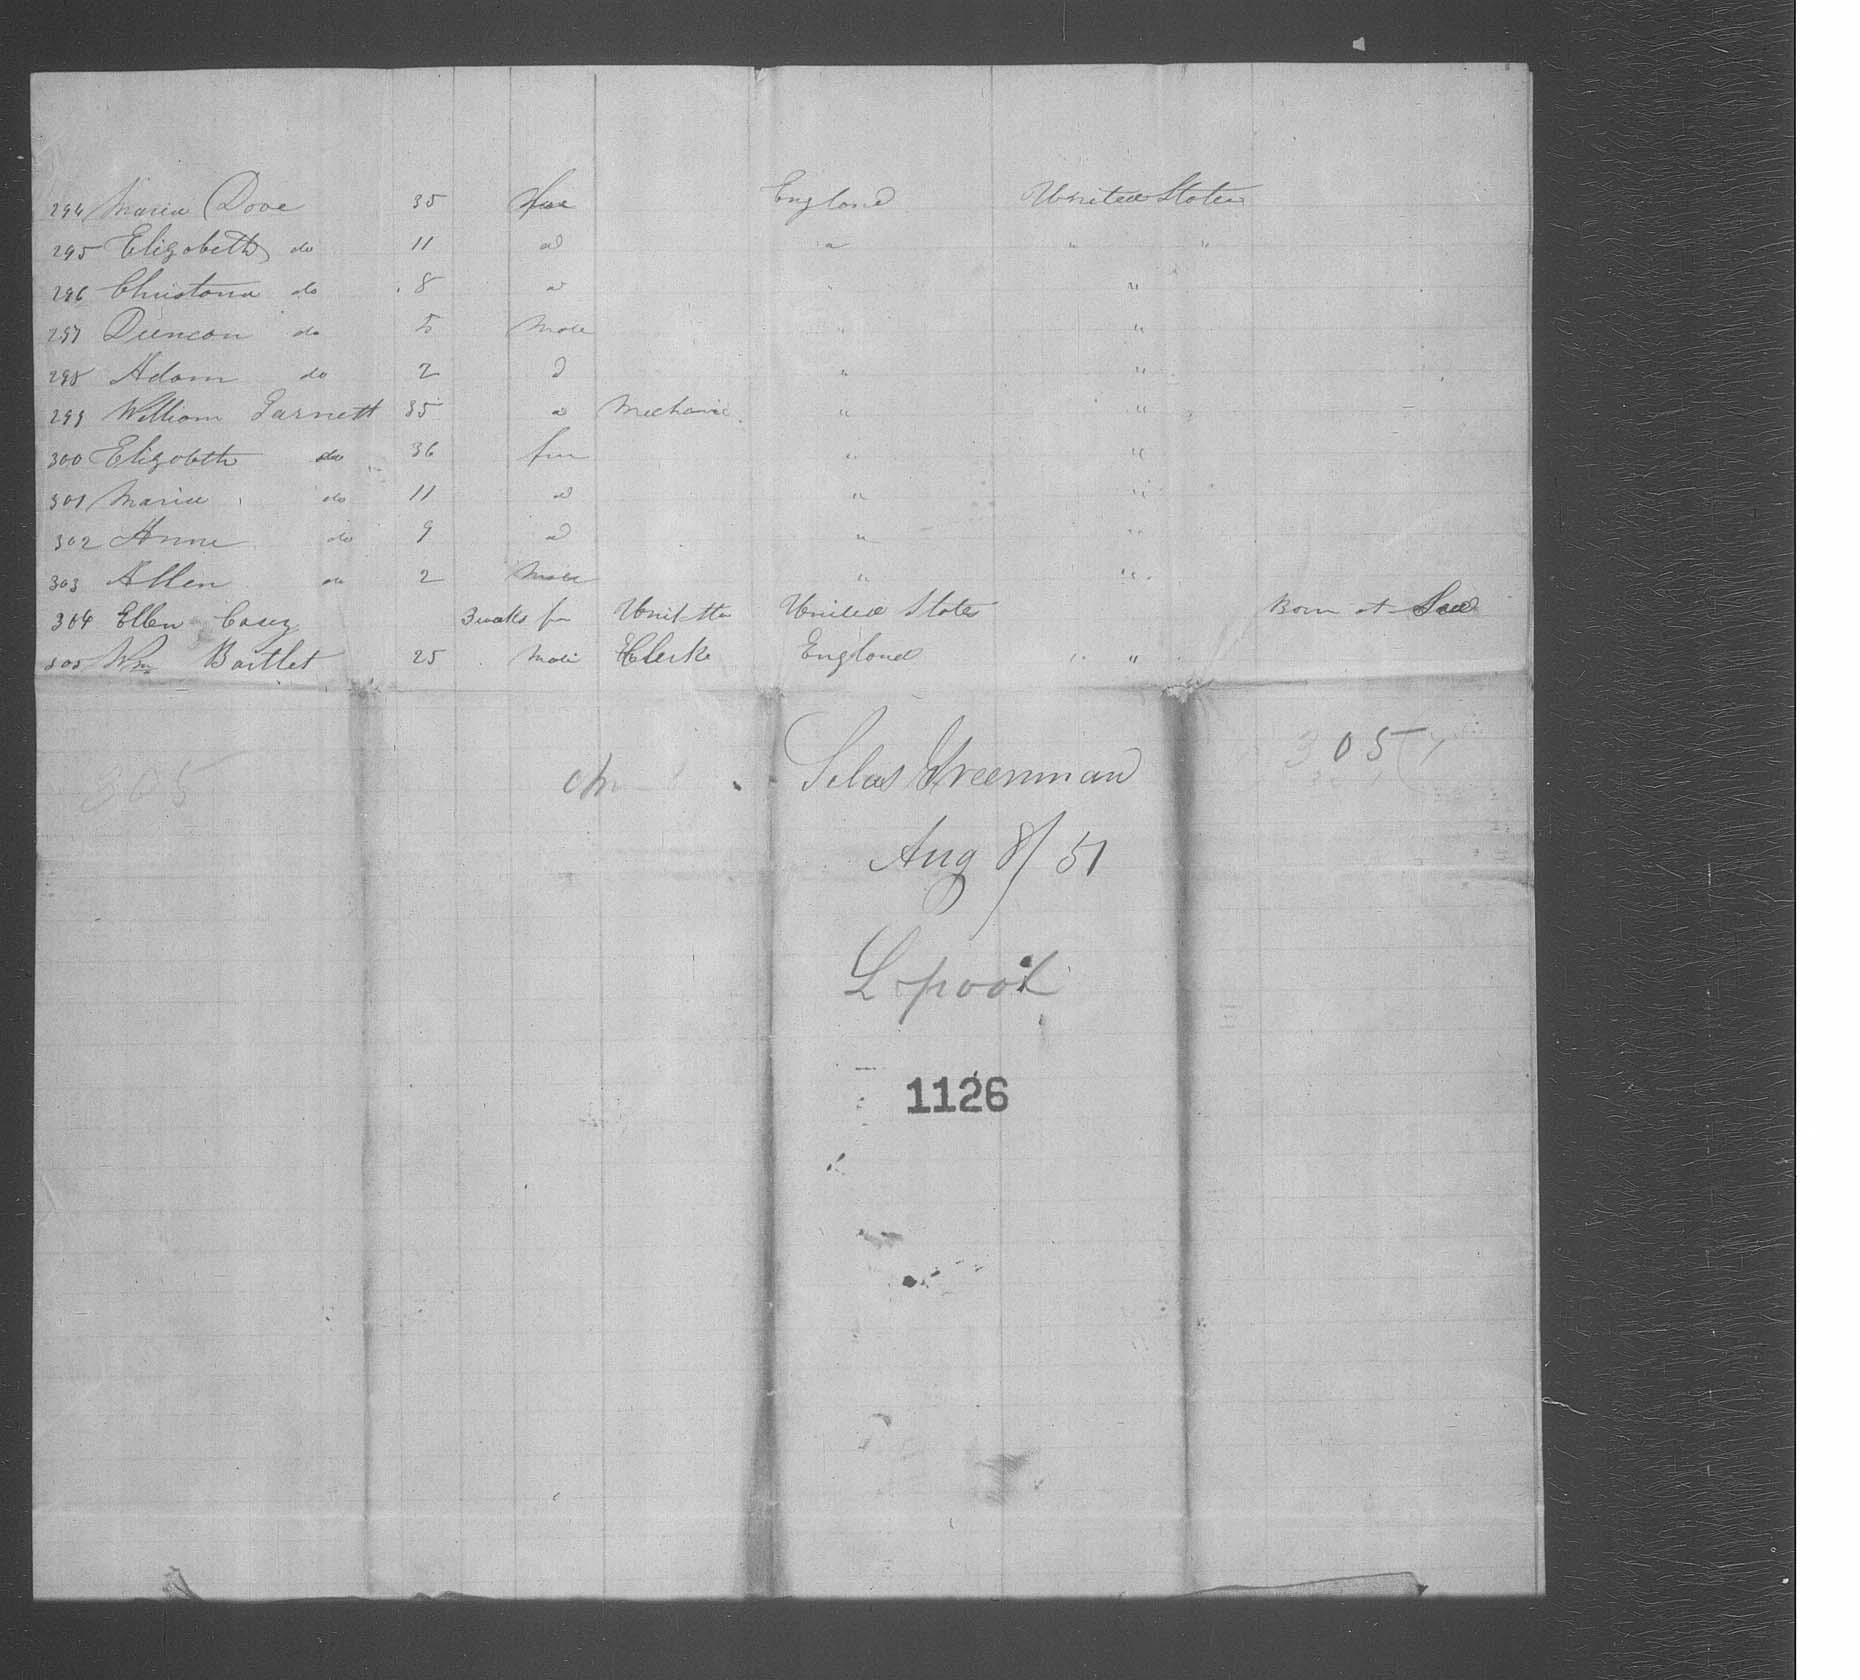 294 Maria Dove 35 fm England United States
295 Elizabeth do 11 d " " "
296 Christana do 8 d " "
297 Duncan do 5 Male " "
298 Adam do 2 d " "
299 William Garnett 35 d Mechanic " "
300 Elizabeth do 36 fm " "
301 Maria do 11 d " "
302 Anne do 9 d " "
303 Allen do 2 Male " "
304 Ellen Casey 3 weeks fm United States Born at Sea
305 Wm Bartlet 25 Male Clerk England " "
305
Silas Greenman
305
Aug 8/51
L pool
1126